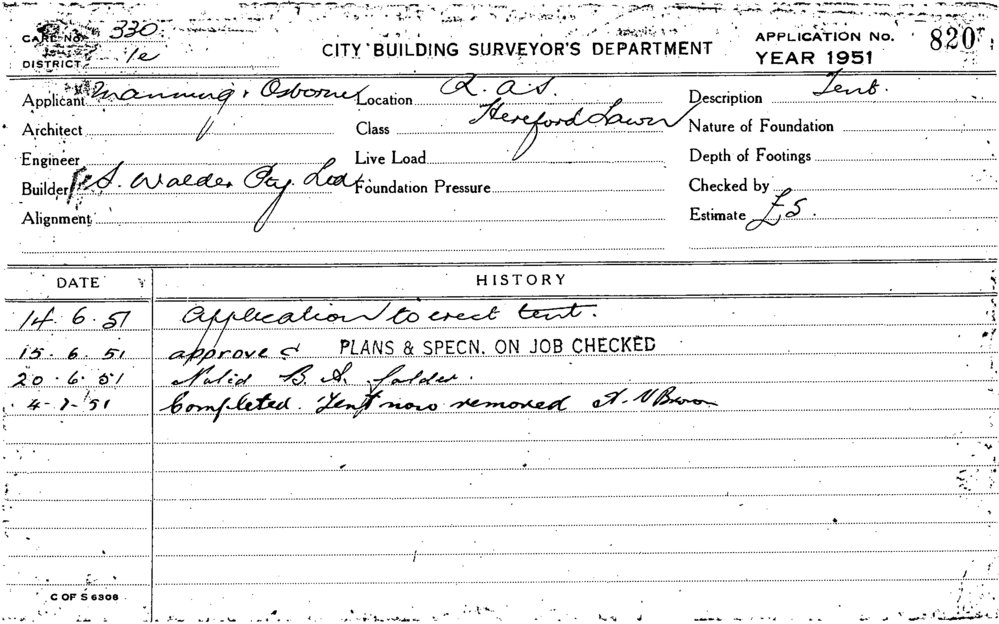 CARD NO. 330
DISTRICT 1e
CITY BUILDING SURVEYOR'S DEPARTMENT
APPLICATION NO. 820
YEAR 1951
Applicant Manning & Osborne
Location R.A.S.
Description Tent.
Architect
Class Hereford Lawn
Nature of Foundation
Engineer
Live Load
Depth of Footings
Builder S. Walder Pty. Ltd.
Foundation Pressure
Checked by
Alignment
Estimate £5.
DATE HISTORY
14. 6. 51 Application to erect tent.
15. 6. 51 approved PLANS & SPECN. ON JOB CHECKED
20. 6. 51 B. A.
4-7-51 Completed. Tent now removed
C OF S 6306